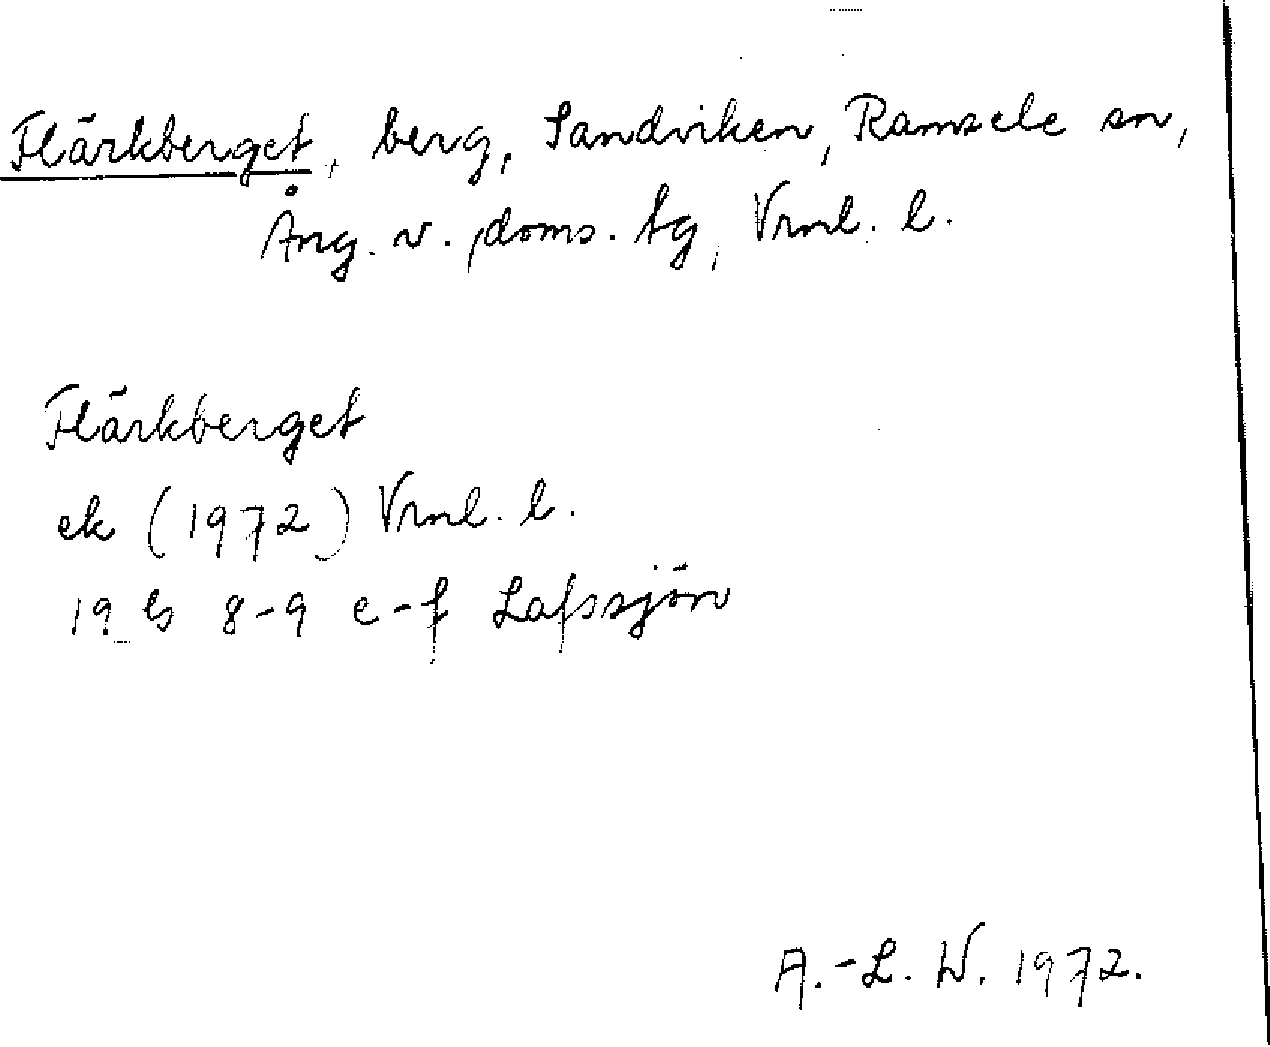 Flärkberget, berg, Sandviken, Ramsele sn,
Ång. v. doms. tg, Vrml. l.
Flärkberget
ek (1972) Vrml. l.
19 G 8-9 e-f Lafssjön
A.-L. W. 1972.